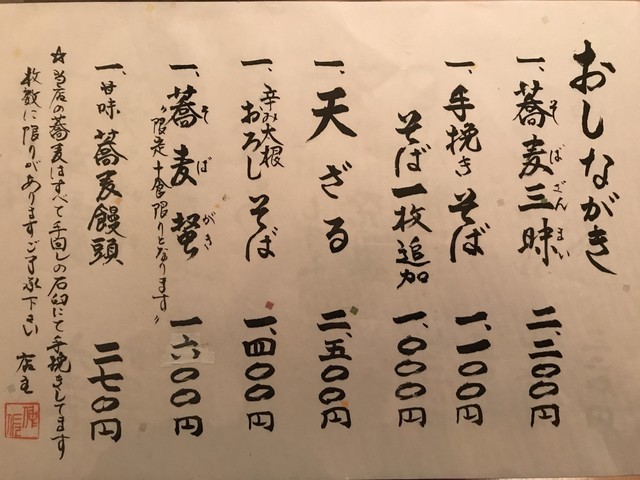 おしながき
一、蕎麦三昧 二、二〇〇円
そばざんまい
一、手挽きそば 一、一〇〇円
そば一枚追加 一、〇〇〇円
一、天ざる 二、五〇〇円
一、辛み大根おろしそば 一、四〇〇円
一、蕎麦蟹 一六〇〇円
そばがき
〝限定十食限りとなります〟
一、甘味 蕎麦饅頭 二七〇円
☆当店の蕎麦はすべて手回しの石臼にて手挽きしてます
枚数に限りがありますご了承下さい 店主